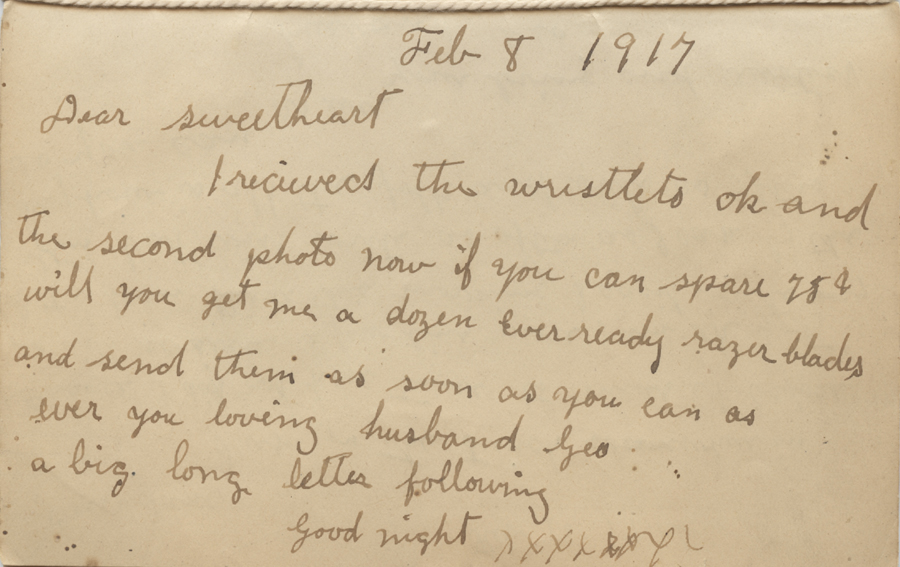 Feb 8 1917
Dear sweetheart
I recieved the wristlets ok and
the second photo now if you can spare 75¢
will you get me a dozen Everready razer blades
and send them as soon as you can as
ever you loving husband Geo
a big long letter following
Good night xxxxxxxx